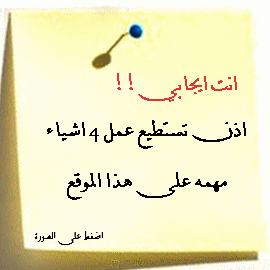 انت ايجابي !!
اذن تستطيع عمل 4 اشياء
مهمه على هذا الموقع
اضغط على الصورة